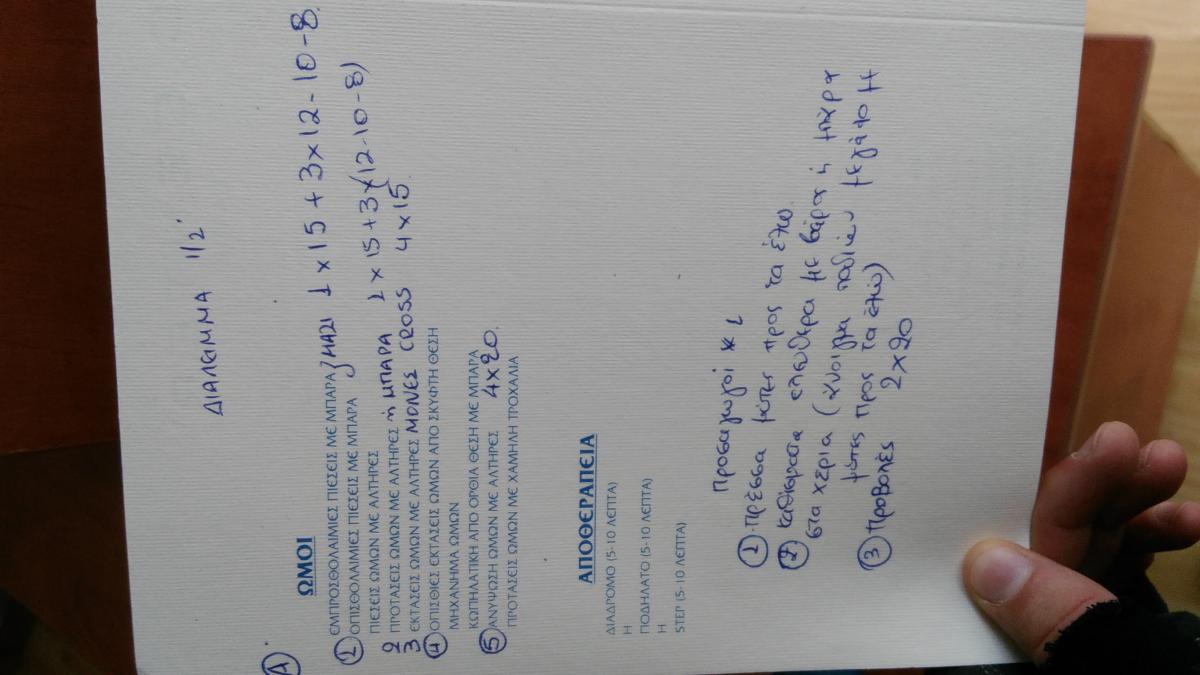 ΔΙΑΛΕΙΜΜΑ 1/2'
Α
ΩΜΟΙ
ΕΜΠΡΟΣΘΟΛΑΙΜΙΕΣ ΠΙΕΣΕΙΣ ΜΕ ΜΠΑΡΑ } ΜΑΖΙ 1 x 15 + 3 x 12 - 10 - 8
1 ΟΠΙΣΘΟΛΑΙΜΙΕΣ ΠΙΕΣΕΙΣ ΜΕ ΜΠΑΡΑ
ΠΙΕΣΕΙΣ ΩΜΩΝ ΜΕ ΑΛΤΗΡΕΣ
2 ΠΡΟΤΑΣΕΙΣ ΩΜΩΝ ΜΕ ΑΛΤΗΡΕΣ ή ΜΠΑΡΑ 1 x 15 + 3 x (12 - 10 - 8)
3 ΕΚΤΑΣΕΙΣ ΩΜΩΝ ΜΕ ΑΛΤΗΡΕΣ ΜΟΝΕΣ CROSS 4 x 15
4 ΟΠΙΣΘΙΕΣ ΕΚΤΑΣΕΙΣ ΩΜΩΝ ΑΠΟ ΣΚΥΦΤΗ ΘΕΣΗ
ΜΗΧΑΝΗΜΑ ΩΜΩΝ
ΚΩΠΗΛΑΤΙΚΗ ΑΠΟ ΟΡΘΙΑ ΘΕΣΗ ΜΕ ΜΠΑΡΑ
5 ΑΝΥΨΩΣΗ ΩΜΩΝ ΜΕ ΑΛΤΗΡΕΣ 4 x 20
ΠΡΟΤΑΣΕΙΣ ΩΜΩΝ ΜΕ ΧΑΜΗΛΗ ΤΡΟΧΑΛΙΑ
ΑΠΟΘΕΡΑΠΕΙΑ
ΔΙΑΔΡΟΜΟ (5-10 ΛΕΠΤΑ)
Η
ΠΟΔΗΛΑΤΟ (5-10 ΛΕΠΤΑ)
Η
STEP (5-10 ΛΕΠΤΑ)
Προσαγωγοί * 1
1 Πρέσσα μύτες προς τα έξω.
2 Καθίσματα ελευθερα με βάρη ή μπάρα
στα χερια (Άνοιγμα ποδιών μεγάλο Η
μύτες προς τα έξω)
3 Προβολές 2 x 20